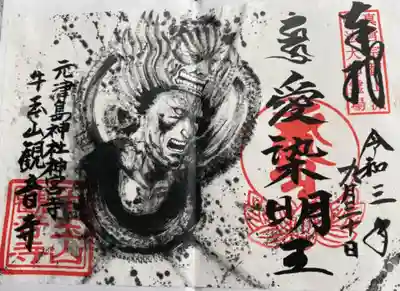 奉拝
令和三年
九月二十日
愛染明王
元津島神社神宮寺
牛玉山観音寺